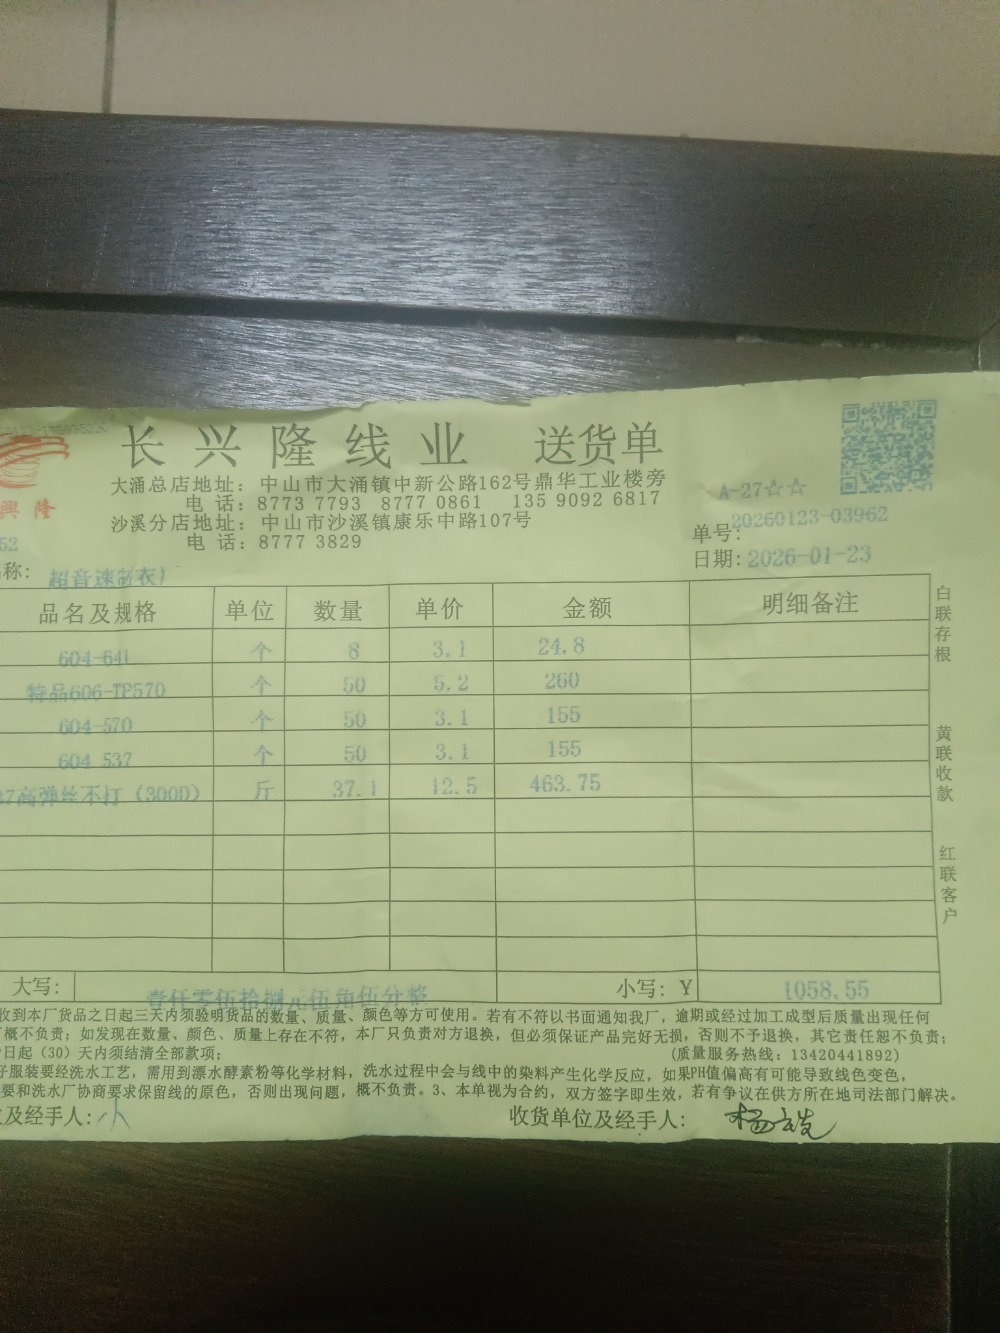 长兴隆线业 送货单
興隆
大涌总店地址：中山市大涌镇中新公路162号鼎华工业楼旁
电话：8773 7793 8777 0861 135 9092 6817
沙溪分店地址：中山市沙溪镇康乐中路107号
电话：8777 3829
A-27☆☆
单号：20260123-03962
日期：2026-01-23
52
称：超音速制衣
品名及规格 单位 数量 单价 金额 明细备注
604-641 个 8 3.1 24.8
特品606-TP570 个 50 5.2 260
604-570 个 50 3.1 155
604 537 个 50 3.1 155
37高弹丝不打（300D） 斤 37.1 12.5 463.75
大写：壹仟零伍拾捌元伍角伍分整 小写：Y 1058.55
白联存根
黄联收款
红联客户
收到本厂货品之日起三天内须验明货品的数量、质量、颜色等方可使用。若有不符以书面通知我厂，逾期或经过加工成型后质量出现任何
概不负责；如发现在数量、颜色、质量上存在不符，本厂只负责对方退换，但必须保证产品完好无损，否则不予退换，其它责任恕不负责；
日起（30）天内须结清全部款项； (质量服务热线：13420441892)
服装要经洗水工艺，需用到漂水酵素粉等化学材料，洗水过程中会与线中的染料产生化学反应，如果PH值偏高有可能导致线色变色，
要和洗水厂协商要求保留线的原色，否则出现问题，概不负责。3、本单视为合约，双方签字即生效，若有争议在供方所在地司法部门解决。
及经手人：小 收货单位及经手人：